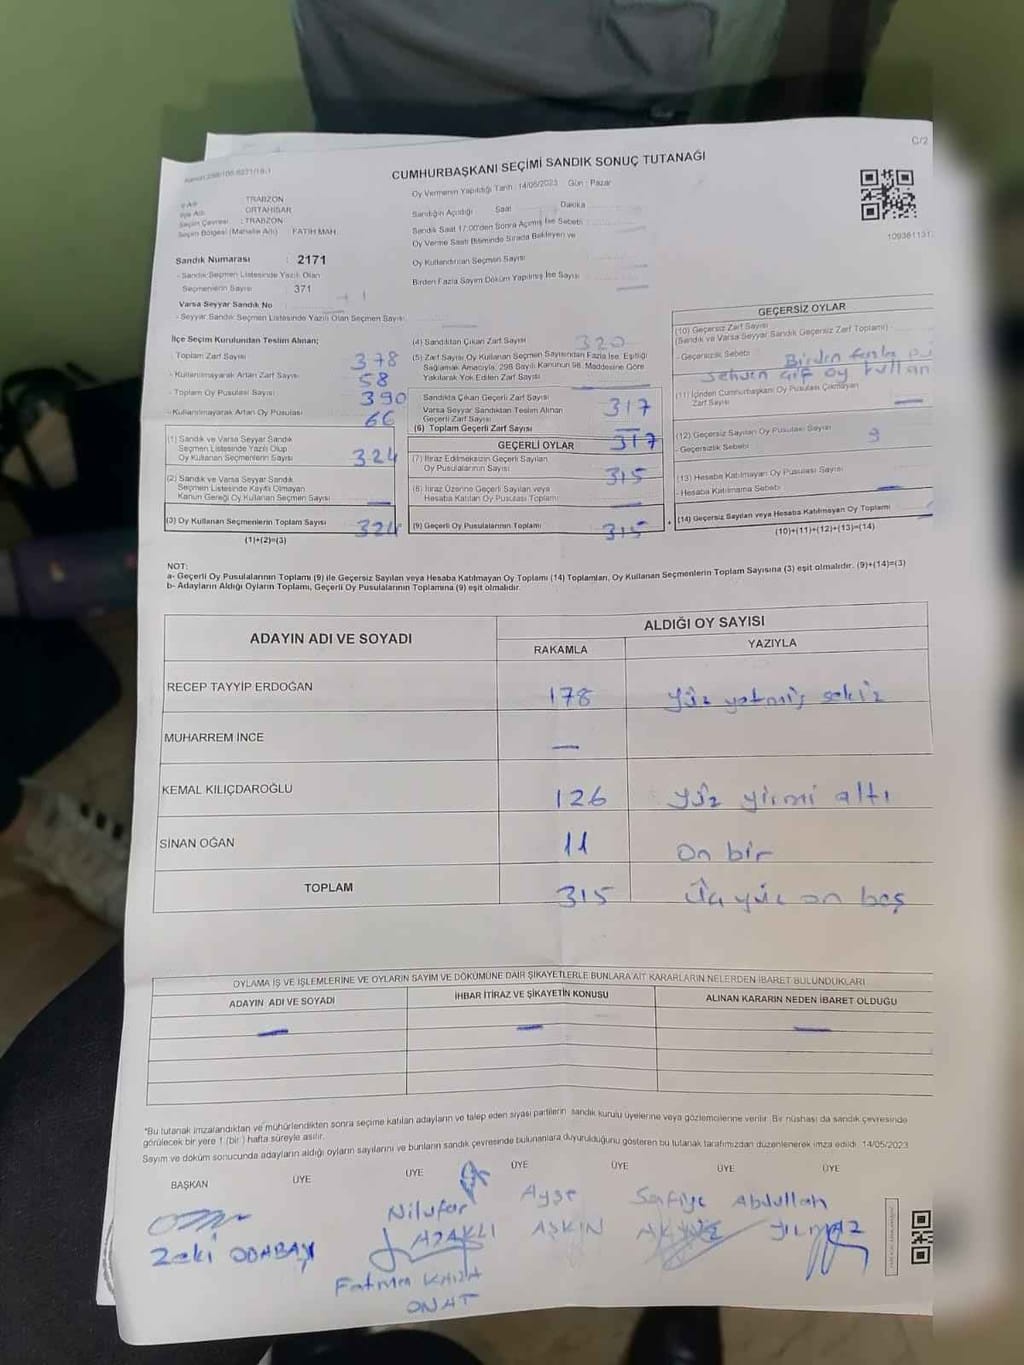 C/2
CUMHURBAŞKANI SEÇİMİ SANDIK SONUÇ TUTANAĞI
Oy Vermenin Yapıldığı Tarih : 14/05/2023 Gün : Pazar
İl Adı : TRABZON
İlçe Adı : ORTAHİSAR
Seçim Çevresi : TRABZON
Seçim Bölgesi (Mahalle Adı) : FATİH MAH.
Sandık Numarası : 2171
- Sandık Seçmen Listesinde Yazılı Olan
Seçmenlerin Sayısı : 371
Varsa Seyyar Sandık No
- Seyyar Sandık Seçmen Listesinde Yazılı Olan Seçmen Sayısı
Sandığın Açıldığı Saat Dakika
Sandık Saat 17:00'den Sonra Açılmış İse Sebebi
Oy Verme Saati Bitiminde Sırada Bekleyen ve
Oy Kullandırılan Seçmen Sayısı
Birden Fazla Sayım Döküm Yapılmış İse Sayısı
109361131
İlçe Seçim Kurulundan Teslim Alınan;
- Toplam Zarf Sayısı 378
- Kullanılmayarak Artan Zarf Sayısı 58
- Toplam Oy Pusulası Sayısı 390
- Kullanılmayarak Artan Oy Pusulası 66
(1) Sandık ve Varsa Seyyar Sandık
Seçmen Listesinde Yazılı Olup
Oy Kullanan Seçmenlerin Sayısı 324
(2) Sandık ve Varsa Seyyar Sandık
Seçmen Listesinde Kayıtlı Olmayan
Kanun Gereği Oy Kullanan Seçmen Sayısı —
(3) Oy Kullanan Seçmenlerin Toplam Sayısı 324
(1)+(2)=(3)
(4) Sandıktan Çıkan Zarf Sayısı 320
(5) Zarf Sayısı Oy Kullanan Seçmen Sayısından Fazla İse, Eşitliği
Sağlamak Amacıyla, 298 Sayılı Kanunun 98. Maddesine Göre
Yakılarak Yok Edilen Zarf Sayısı
Sandıkta Çıkan Geçerli Zarf Sayısı 317
Varsa Seyyar Sandıktan Teslim Alınan
Geçerli Zarf Sayısı —
(6) Toplam Geçerli Zarf Sayısı 317
GEÇERLİ OYLAR
(7) İtiraz Edilmeksizin Geçerli Sayılan
Oy Pusulalarının Sayısı 315
(8) İtiraz Üzerine Geçerli Sayılan veya
Hesaba Katılan Oy Pusulası Toplamı —
(9) Geçerli Oy Pusulalarının Toplamı 315
GEÇERSİZ OYLAR
(10) Geçersiz Zarf Sayısı
(Sandık ve Varsa Seyyar Sandık Geçersiz Zarf Toplamı)
- Geçersizlik Sebebi Birden fazla
oy
(11) İçinden Cumhurbaşkanı Oy Pusulası Çıkmayan
Zarf Sayısı —
(12) Geçersiz Sayılan Oy Pusulası Sayısı 9
- Geçersizlik Sebebi
(13) Hesaba Katılmayan Oy Pusulası Sayısı
- Hesaba Katılmama Sebebi —
(14) Geçersiz Sayılan veya Hesaba Katılmayan Oy Toplamı
(10)+(11)+(12)+(13)=(14)
NOT:
a- Geçerli Oy Pusulalarının Toplamı (9) ile Geçersiz Sayılan veya Hesaba Katılmayan Oy Toplamı (14) Toplamları, Oy Kullanan Seçmenlerin Toplam Sayısına (3) eşit olmalıdır. (9)+(14)=(3)
b- Adayların Aldığı Oyların Toplamı, Geçerli Oy Pusulalarının Toplamına (9) eşit olmalıdır.
ADAYIN ADI VE SOYADI ALDIĞI OY SAYISI
RAKAMLA YAZIYLA
RECEP TAYYİP ERDOĞAN 178 yüz yetmiş sekiz
MUHARREM İNCE —
KEMAL KILIÇDAROĞLU 126 yüz yirmi altı
SİNAN OĞAN 11 On bir
TOPLAM 315 Üç yüz on beş
OYLAMA İŞ VE İŞLEMLERİNE VE OYLARIN SAYIM VE DÖKÜMÜNE DAİR ŞİKAYETLERLE BUNLARA AİT KARARLARIN NELERDEN İBARET BULUNDUKLARI
ADAYIN ADI VE SOYADI İHBAR İTİRAZ VE ŞİKAYETİN KONUSU ALINAN KARARIN NEDEN İBARET OLDUĞU
— — —
*Bu tutanak imzalandıktan ve mühürlendikten sonra seçime katılan adayların ve talep eden siyasi partilerin sandık kurulu üyelerine veya gözlemcilerine verilir. Bir nüshası da sandık çevresinde
görülecek bir yere 1 (bir) hafta süreyle asılır.
Sayım ve döküm sonucunda adayların aldığı oyların sayılarını ve bunların sandık çevresinde bulunanlara duyurulduğunu gösteren bu tutanak tarafımızdan düzenlenerek imza edildi. 14/05/2023
BAŞKAN ÜYE ÜYE ÜYE ÜYE ÜYE ÜYE
Nilüfer Ayşe Safiye Abdullah
Zeki ODABAŞI AŞKIN YILMAZ
Fatma KAYA
ONAT